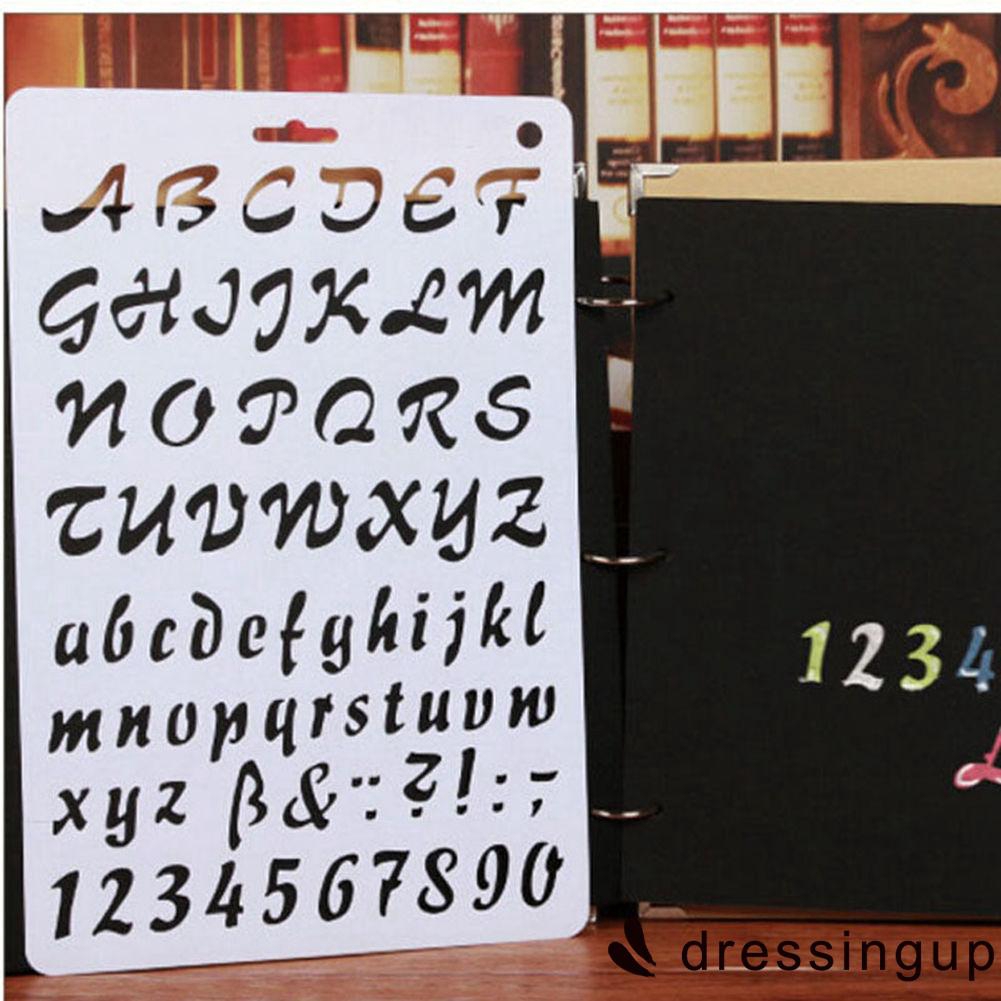 ABCDEF
GHIJKLM
NOPQRS
TUVWXYZ
abcdefghijkl
mnopqrstuvw
xyz ß&:¨?!:;-
1234567890
1234
L
dressingup